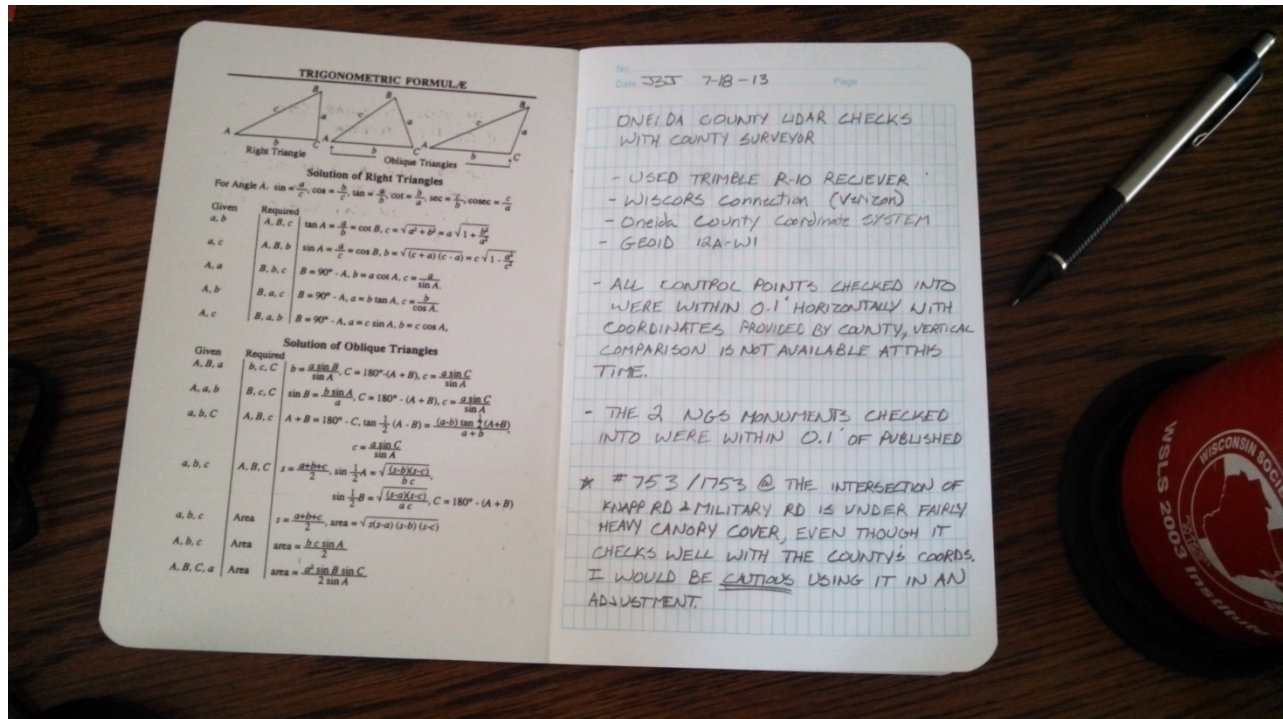 TRIGONOMETRIC FORMULÆ
B
c
a
A
b
C
Right Triangle
B
c
a
A
b
C
Oblique Triangles
B
c
a
A
b
C
Solution of Right Triangles
For Angle A. sin = a/c, cos = b/c, tan = a/b, cot = b/a, sec = c/b, cosec = c/a
Given Required
a, b A, B, c tan A = a/b = cot B, c = √(a² + b²) = a √(1 + b²/a²)
a, c A, B, b sin A = a/c = cos B, b = √((c + a) (c - a)) = c √(1 - a²/c²)
A, a B, b, c B = 90° - A, b = a cot A, c = a/sin A.
A, b B, a, c B = 90° - A, a = b tan A, c = b/cos A.
A, c B, a, b B = 90° - A, a = c sin A, b = c cos A,
Solution of Oblique Triangles
Given Required
A, B, a b, c, C b = a sin B/sin A, C = 180°-(A + B), c = a sin C/sin A
A, a, b B, c, C sin B = b sin A/a, C = 180° - (A + B), c = a sin C/sin A
a, b, C A, B, c A + B = 180° - C, tan 1/2 (A - B) = (a-b) tan 1/2 (A+B)/a + b,
c = a sin C/sin A
a, b, c A, B, C s = a+b+c/2, sin 1/2 A = √((s-b)(s-c)/b c),
sin 1/2 B = √((s-a)(s-c)/a c), C = 180° - (A + B)
a, b, c Area s = a+b+c/2, area = √(s(s-a) (s-b) (s-c))
A, b, c Area area = b c sin A/2
A, B, C, a Area area = a² sin B sin C/2 sin A
No.
Date JBJ 7-18-13 Page
ONEIDA COUNTY LIDAR CHECKS
WITH COUNTY SURVEYOR
- USED TRIMBLE R-10 RECIEVER
- WISCORS Connection (Verizon)
- Oneida County Coordinate SYSTEM
- GEOID 12A-WI
- ALL CONTROL POINTS CHECKED INTO
WERE WITHIN 0.1' HORIZONTALLY WITH
COORDINATES PROVIDED BY COUNTY, VERTICAL
COMPARISON IS NOT AVAILABLE AT THIS
TIME.
- THE 2 NGS MONUMENTS CHECKED
INTO WERE WITHIN 0.1' OF PUBLISHED
* #753/1753 @ THE INTERSECTION OF
KNAPP RD & MILITARY RD IS UNDER FAIRLY
HEAVY CANOPY COVER, EVEN THOUGH IT
CHECKS WELL WITH THE COUNTY'S COORDS.
I WOULD BE CAUTIOUS USING IT IN AN
ADJUSTMENT.
WISCONSIN SOCI
WSLS 2003 Institute